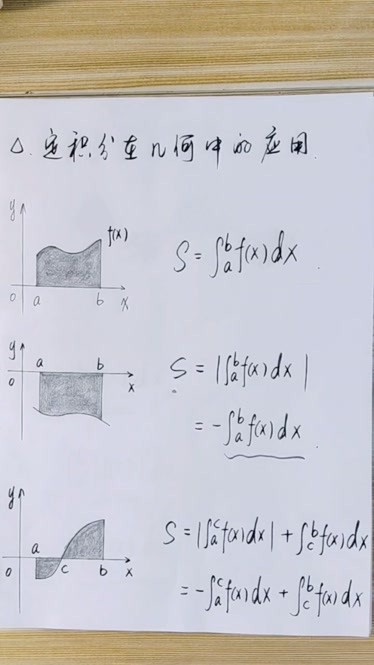 △. 定积分在几何中的应用.
y
f(x)
0 a b x
S = ∫_a^b f(x)dx.
y
a b
0 x
S = |∫_a^b f(x)dx|
= -∫_a^b f(x)dx.
y
a
0 c b x
S = |∫_a^c f(x)dx| + ∫_c^b f(x)dx
= -∫_a^c f(x)dx + ∫_c^b f(x)dx